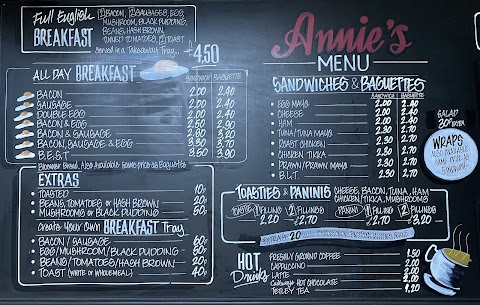 Full English
BREAKFAST
2 BACON, 2 SAUSAGES, EGG,
MUSHROOM, BLACK PUDDING,
BEANS, HASH BROWN,
TINNED TOMATOES, 2 TOAST
Served in a Takeaway Tray...
4.50
ALL DAY BREAKFAST
SANDWICH BAGUETTE
BACON 2.00 2.40
SAUSAGE 2.00 2.40
DOUBLE EGG 2.00 2.40
BACON & EGG 2.50 2.90
BACON & SAUSAGE 2.80 3.20
BACON, SAUSAGE & EGG 3.30 3.70
B.E.S.T 3.50 3.90
Bloomer Bread Also Available Same price as Baguettes
EXTRAS
TOASTED 10p
BEANS, TOMATOES or HASH BROWN 20p
MUSHROOMS or BLACK PUDDING 50p
Create Your Own BREAKFAST Tray
BACON / SAUSAGE 80p
EGG / MUSHROOM / BLACK PUDDING 60p
BEANS / TOMATOES / HASH BROWN 20p
TOAST (WHITE or WHOLEMEAL) 40p
Annie's
MENU
SANDWICHES & BAGUETTES
SANDWICH BAGUETTE
EGG MAYO 2.00 2.40
CHEESE 2.00 2.40
HAM 2.00 2.40
TUNA/TUNA MAYO 2.30 2.70
ROAST CHICKEN 2.30 2.70
CHICKEN TIKKA 2.30 2.70
PRAWN/PRAWN MAYO 2.30 2.70
B.L.T. 2.30 2.70
SALAD
30p EXTRA
WRAPS
ALSO AVAILABLE
SAME PRICE AS
SANDWICH
TOASTIES & PANINIS
CHEESE, BACON, TUNA, HAM
CHICKEN, TIKKA, MUSHROOMS
TOASTIE 1 FILLING 2.20 2 FILLINGS 2.70
PANINI 1 FILLING 2.70 2 FILLINGS 3.20
EXTRAS 20p
HOT Drinks
FRESHLY GROUND COFFEE 1.50
CAPPUCCINO 2.00
LATTE 2.00
Cadburys HOT CHOCOLATE 2.00
TETLEY TEA 1.20